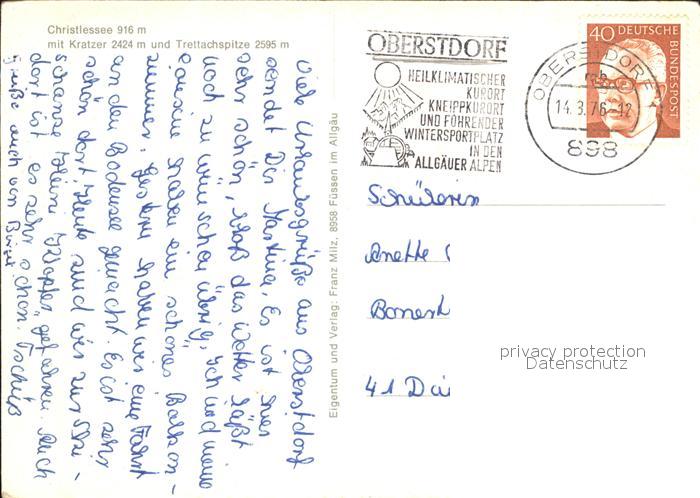 Christlessee 916 m
mit Kratzer 2424 m und Trettachspitze 2595 m
Viele Urlaubsgrüße aus Oberstdorf
sendet Dir Martina. Es ist hier
sehr schön, bloß das Wetter läßt
noch zu wünschen übrig. Ich und meine
Cousine haben ein schönes Balkon-
zimmer. Gestern haben wir eine Fahrt
an den Bodensee gemacht. Es ist sehr
schön dort. Heute sind wir zur Ski-
schanze gefahren. Auch
dort ist es sehr schön. Tschüß
Grüße auch von Birgit
Eigentum und Verlag: Franz Milz, 8958 Füssen im Allgäu
OBERSTDORF
HEILKLIMATISCHER
KURORT
KNEIPPKURORT
UND FÜHRENDER
WINTERSPORTPLATZ
IN DEN
ALLGÄUER ALPEN
OBERSTDORF 1
14.3.76-12
898
40 DEUTSCHE
BUNDESPOST
Schülerin
Anette
41 Dui
privacy protection
Datenschutz